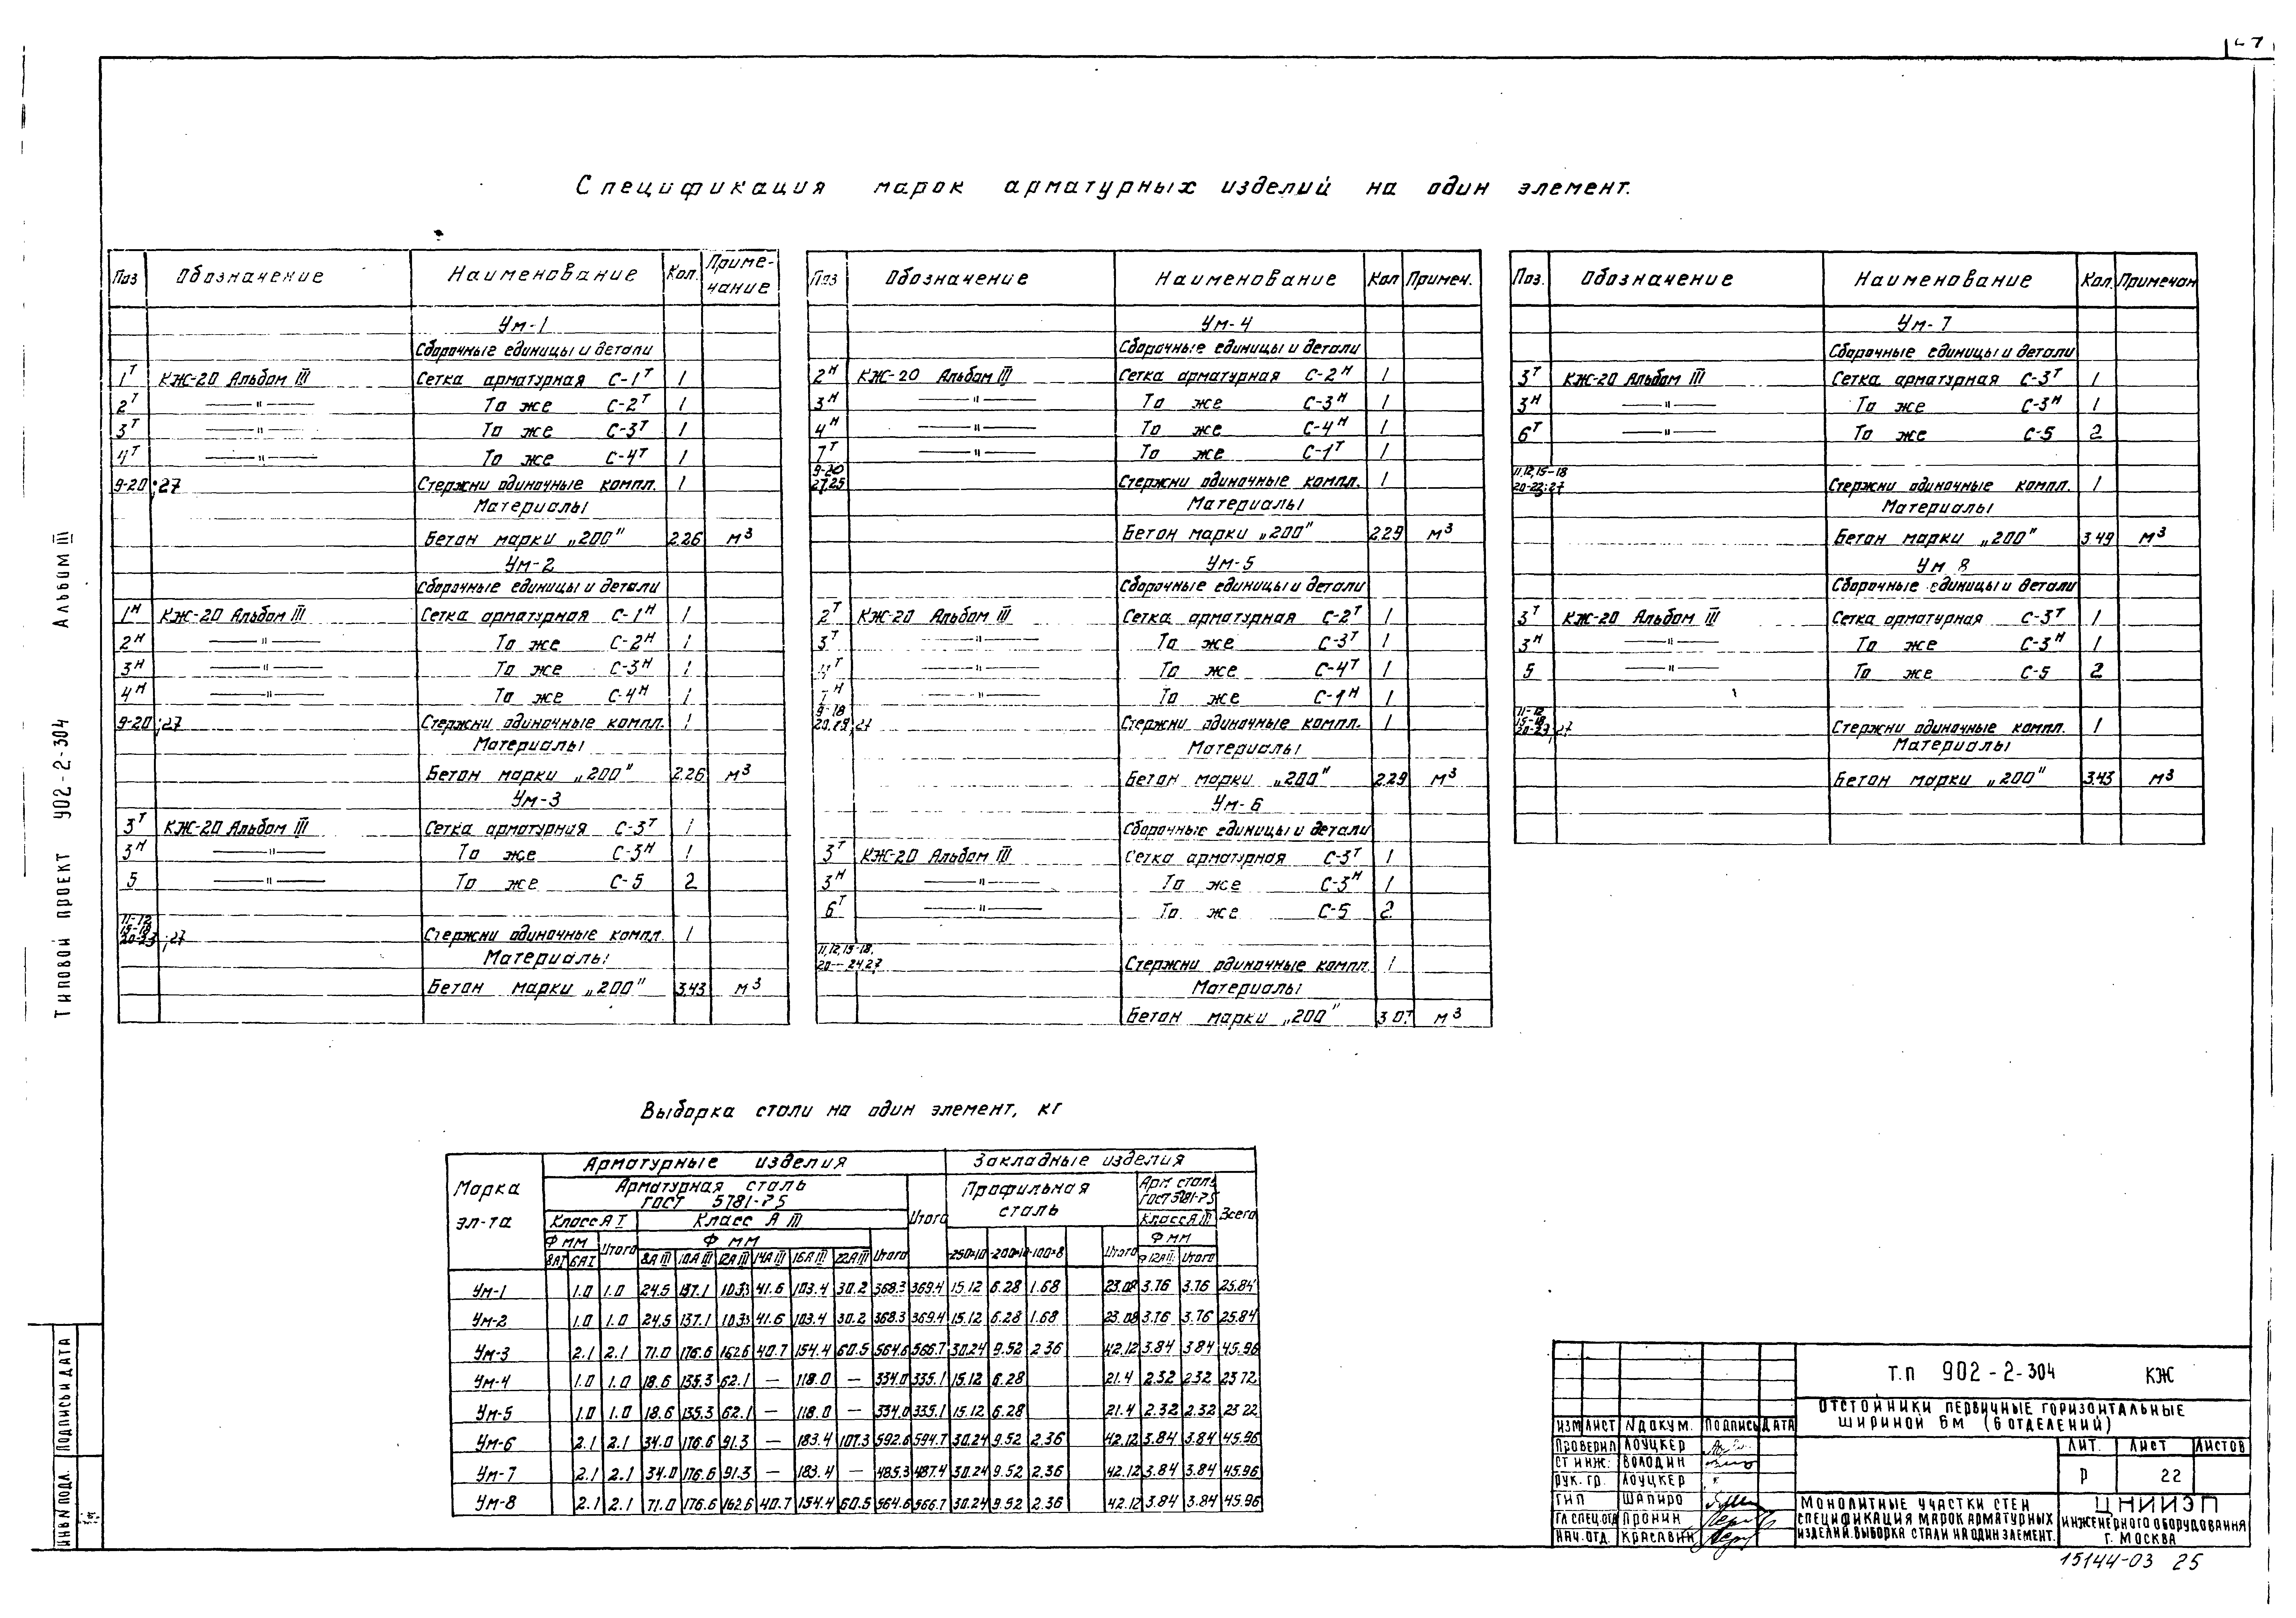 Спецификация марок арматурных изделий на один элемент.
Поз Обозначение Наименование Кол. Приме-чание
Ум-1
Сборочные единицы и детали
1Т КЖ-20 Альбом III Сетка арматурная С-1Т 1
2Т —"— То же С-2Т 1
3Т —"— То же С-3Т 1
4Т —"— То же С-4Т 1
9-20;27 Стержни одиночные компл. 1
Материалы
Бетон марки „200" 2.26 м3
Ум-2
Сборочные единицы и детали
1Н КЖ-20 Альбом III Сетка арматурная С-1Н 1
2Н —"— То же С-2Н 1
3Н —"— То же С-3Н 1
4Н —"— То же С-4Н 1
9-20;27 Стержни одиночные компл. 1
Материалы
Бетон марки „200" 2.26 м3
Ум-3
3Т КЖ-20 Альбом III Сетка арматурная С-3Т 1
3Н —"— То же С-3Н 1
5 —"— То же С-5 2
11-12 15-18 20-23;27 Стержни одиночные компл. 1
Материалы
Бетон марки „200" 3.43 м3
Поз Обозначение Наименование Кол Примеч.
Ум-4
Сборочные единицы и детали
2Н КЖ-20 Альбом III Сетка арматурная С-2Н 1
3Н —"— То же С-3Н 1
4Н —"— То же С-4Н 1
7Т —"— То же С-1Т 1
9-20 27,25 Стержни одиночные компл. 1
Материалы
Бетон марки „200" 2.29 м3
Ум-5
Сборочные единицы и детали
2Т КЖ-20 Альбом III Сетка арматурная С-2Т 1
3Т —"— То же С-3Т 1
4Т —"— То же С-4Т 1
—"— То же С-1Н 1
9-18 Стержни одиночные компл. 1
Материалы
Бетон марки „200" 2.29 м3
Ум-6
Сборочные единицы и детали
3Т КЖ-20 Альбом III Сетка арматурная С-3Т 1
3Н —"— То же С-3Н 1
6Т —"— То же С-5 2
11,12,15-18, 20-24,27 Стержни одиночные компл. 1
Материалы
Бетон марки „200" м3
Поз. Обозначение Наименование Кол. Примечан
Ум-7
Сборочные единицы и детали
3Т КЖ-20 Альбом III Сетка арматурная С-3Т 1
3Н —"— То же С-3Н 1
6Т —"— То же С-5 2
11,12,15-18 20-23;27 Стержни одиночные компл. 1
Материалы
Бетон марки „200" 3.49 м3
Ум 8
Сборочные единицы и детали
3Т КЖ-20 Альбом III Сетка арматурная С-3Т 1
3Н —"— То же С-3Н 1
5 —"— То же С-5 2
11-12 15-18 20-23;27 Стержни одиночные компл. 1
Материалы
Бетон марки „200" 3.43 м3
Выборка стали на один элемент, кг
Марка эл-та Арматурные изделия Закладные изделия
Арматурная сталь ГОСТ 5781-75 Итого Профильная сталь Арм сталь ГОСТ 5781-75 Всего
Класс А I Класс А III Класс А III
Ф мм Итого Ф мм Ф мм
8АI 6АI 8АIII 10АIII 12АIII 14АIII 16АIII 22АIII Итого -250×10 -200×10 -100×8 Итого Ф12АIII Итого
Ум-1 1.0 1.0 24.5 137.1 10.33 41.6 103.4 30.2 368.3 369.4 15.12 6.28 1.68 23.08 3.76 3.76 25.84
Ум-2 1.0 1.0 24.5 137.1 10.33 41.6 103.4 30.2 368.3 369.4 15.12 6.28 1.68 23.08 3.76 3.76 25.84
Ум-3 2.1 2.1 71.0 176.6 162.6 40.7 154.4 60.5 564.6 566.7 30.24 9.52 2.36 42.12 3.84 3.84 45.96
Ум-4 1.0 1.0 18.6 135.3 62.1 — 118.0 — 334.0 335.1 15.12 6.28 21.4 2.32 2.32 23 72
Ум-5 1.0 1.0 18.6 135.3 62.1 — 118.0 — 334.0 335.1 15.12 6.28 21.4 2.32 2.32 23 22
Ум-6 2.1 2.1 34.0 176.6 91.3 — 183.4 107.3 592.6 594.7 30.24 9.52 2.36 42.12 3.84 3.84 45.96
Ум-7 2.1 2.1 34.0 176.6 91.3 — 183.4 — 485.3 487.4 30.24 9.52 2.36 42.12 3.84 3.84 45.96
Ум-8 2.1 2.1 71.0 176.6 162.6 40.7 154.4 60.5 564.6 566.7 30.24 9.52 2.36 42.12 3.84 3.84 45.96
Типовой проект 902-2-304 Альбом III
Подпись и дата
Инв N подл.
Т.П 902-2-304 КЖ
Отстойники первичные горизонтальные
шириной 6м (6 отделений)
Изм Лист N докум. Подпись Дата
Проверил Лоуцкер
Ст инж. Володин
Рук. гр. Лоуцкер
ГИП Шапиро
Гл спец.отд Пронин
Нач.отд. Красавин
Лит. Лист Листов
Р 22
Монолитные участки стен
спецификация марок арматурных
изделий. Выборка стали на один элемент.
ЦНИИЭП
инженерного оборудования
г. Москва
15144-03 25